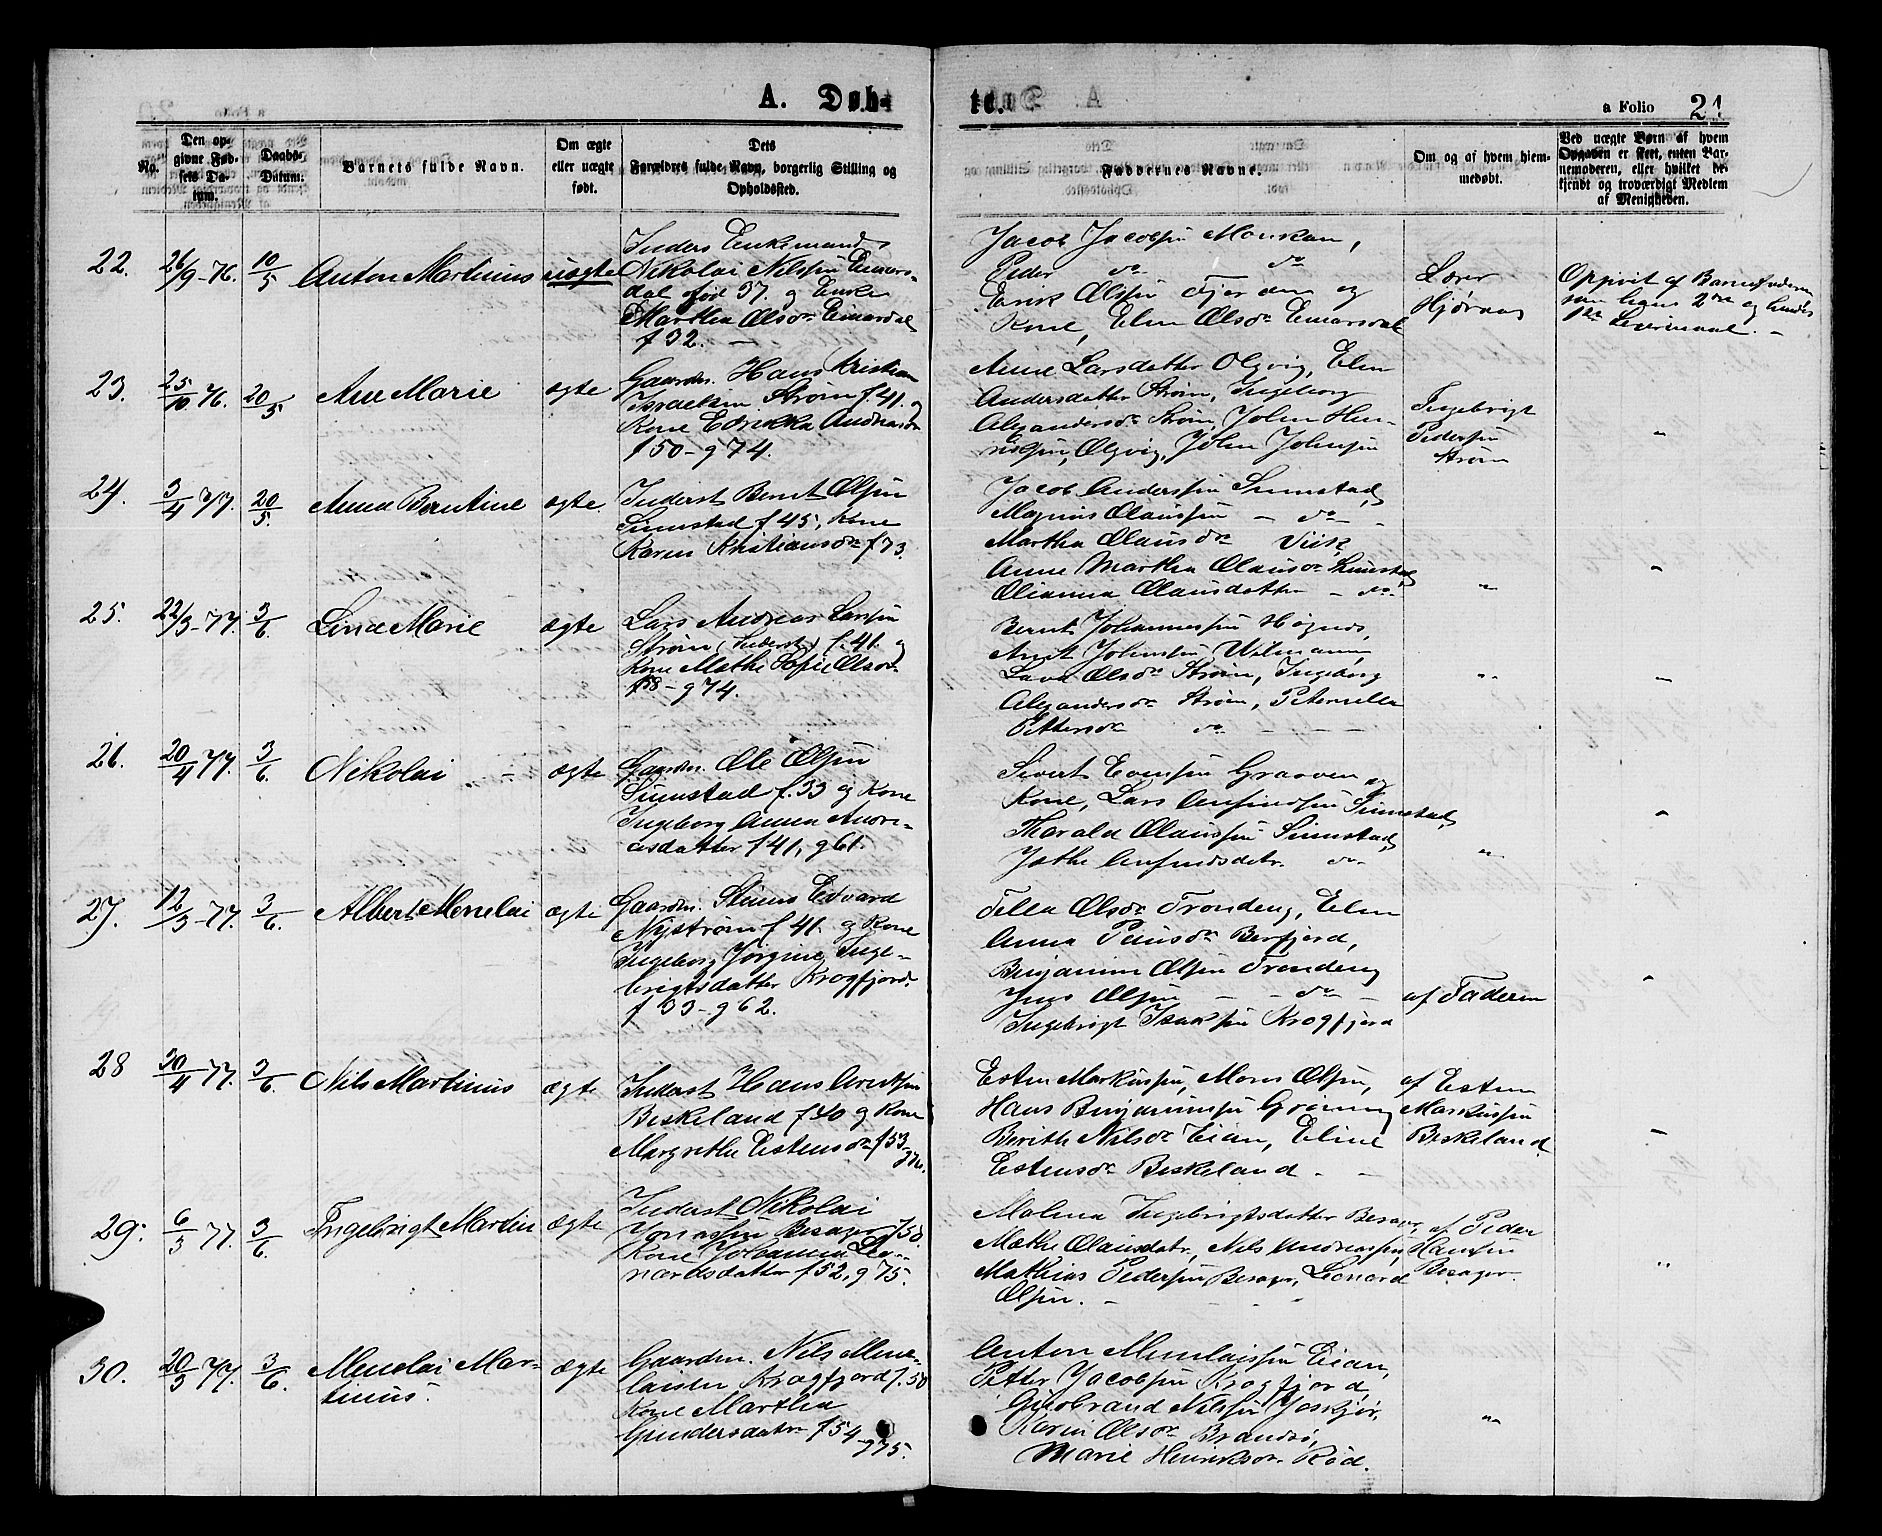 A. Døb-
te.
a Folio 21
No.
Den op-
givne Fød-
sels Da-
tum.
Daabs-
Datum.
Barnets fulde Navn.
Om ægte
eller uægte
født.
Dets
Forældres fulde Navn, borgerlig Stilling og
Opholdssted.
Faddernes Navne.
Om og af hvem hjem-
medøbt.
Ved uægte Børn af hvem
Opgaven er skeet, enten Bar-
nemoderen, eller hvilket be-
kjendt og troværdigt Medlem
af Menigheden.
22.
26/9-76.
10/5
Anton Martinus
uægte
Inders Enkemand
Nikolai Nilssen Einars-
dal født 37. og Enke
Martha Olsdr Einarsdal
f 32. —
Jacob Jacobsen Monkan,
Peder do do
Eerik Olssen og
Kone, Elen Olsdr Einarsdal
Lærer
Opgivit af Barnefaderen
som hans 2det og hendes
1ste Leiermaal. -
23.
25/10 76.
20/5
Ane Marie
ægte
Gaardm. Hans Kristian
Israelsen Strøm f 41. og
Kone Edrikka Andreasdr
f 50 - g 74.
Anne Larsdatter Olgvig, Elen
Andersdatter Strøm, Ingeborg
Alexandersdr Strøm, John Hen-
riksen, Olgvig, John Johnsen
Ingebrigt
Pedersen
Strøm
"
24.
3/4 77.
20/5.
Anna Berntine
ægte.
Inderst Bernt Olsen
Sumstad f 45, Kone
Karen Kristiansdr f 73.
Jacob Anderssen Sumstad,
Magnus Olaussen - do -
Martha Olausdr Viik,
Anne Martha Olausdr Sumstad,
Olianna Olausdatter - do -
"
"
25.
22/3-77.
3/6.
Lina Marie
ægte
Lars Andreas Larssen
Strøm (Inderst) f. 41. og
Kone Mathe Sofie Olsdr
f 58 - g 74.
Bernt Johannessen Høgnes,
Arnt Johnsen
Lava Olsdr Strøm, Ingeborg
Alexandersdr Strøm, Peternella
Pettersdr do
"
—
26.
20/4 77.
3/6.
Nikolai
ægte
Gaardm. Ole Olsen
Sumstad f. 33 og Kone
Ingeborg Anna Andre-
asdatter f 41, g 61.
Sivert Evensen Graaven og
Kone, Lars Anfindsen Sumstad,
Tharald Olaussen Sumstad,
Anfindsdatr. do
"
"
27.
12/3-77.
3/6.
Albert Menelai
ægte
Gaardm. Edvard
Nystrøm f 41. og Kone
Ingeborg Jørgine Inge-
brigtsdatter Krogfjord.
f 33 - g 62.
Olsdr Trondeng, Elen
Anna Berfjord,
Benjamin Olsen Trondeng
Jens Olsen - - do -
Ingebrigt Isaksen Krogfjord
af Faderen
"
28
30/4 77.
3/6.
Nils Martinus
ægte
Inderst Hans Arntsen
Beskeland f 40 og Kone
Margrethe Estensdr f 53-
g 76.
Esten Markussen, Mons Olsen,
Hans Benjaminsen Grøning
Berith Nilsdr Eian, Eline
Estensdr Beskeland -
af Esten
Markussen
Beskeland.
—
29.
6/3 77.
3/6.
Ingebrigt Martin
ægte
Inderst Nikolai
Jonassen Besager f 50.
Kone Johanna Leo-
nardsdatter f 52, g 75.
Malena Ingebrigtsdatter Besager,
Mathe Olausdatr, Nils Andreassen,
Mathias Pedersen Besager, Leonard
Olsen. -
af Peder
Hansen
Besager.
"
30.
20/3 77.
3/6.
Menelai Mar-
tinus.
ægte
Gaardm. Nils Mene-
laisen Krogfjord f. 50
Kone Martha
Gundersdatr f 54
- g 75.
Anton Menelaissen Eian,
Petter Jacobsen Krogfjord,
Gulbrand Nilsen
Karen Olsdr Brandsø,
Marie Henriksdr Rød.
"